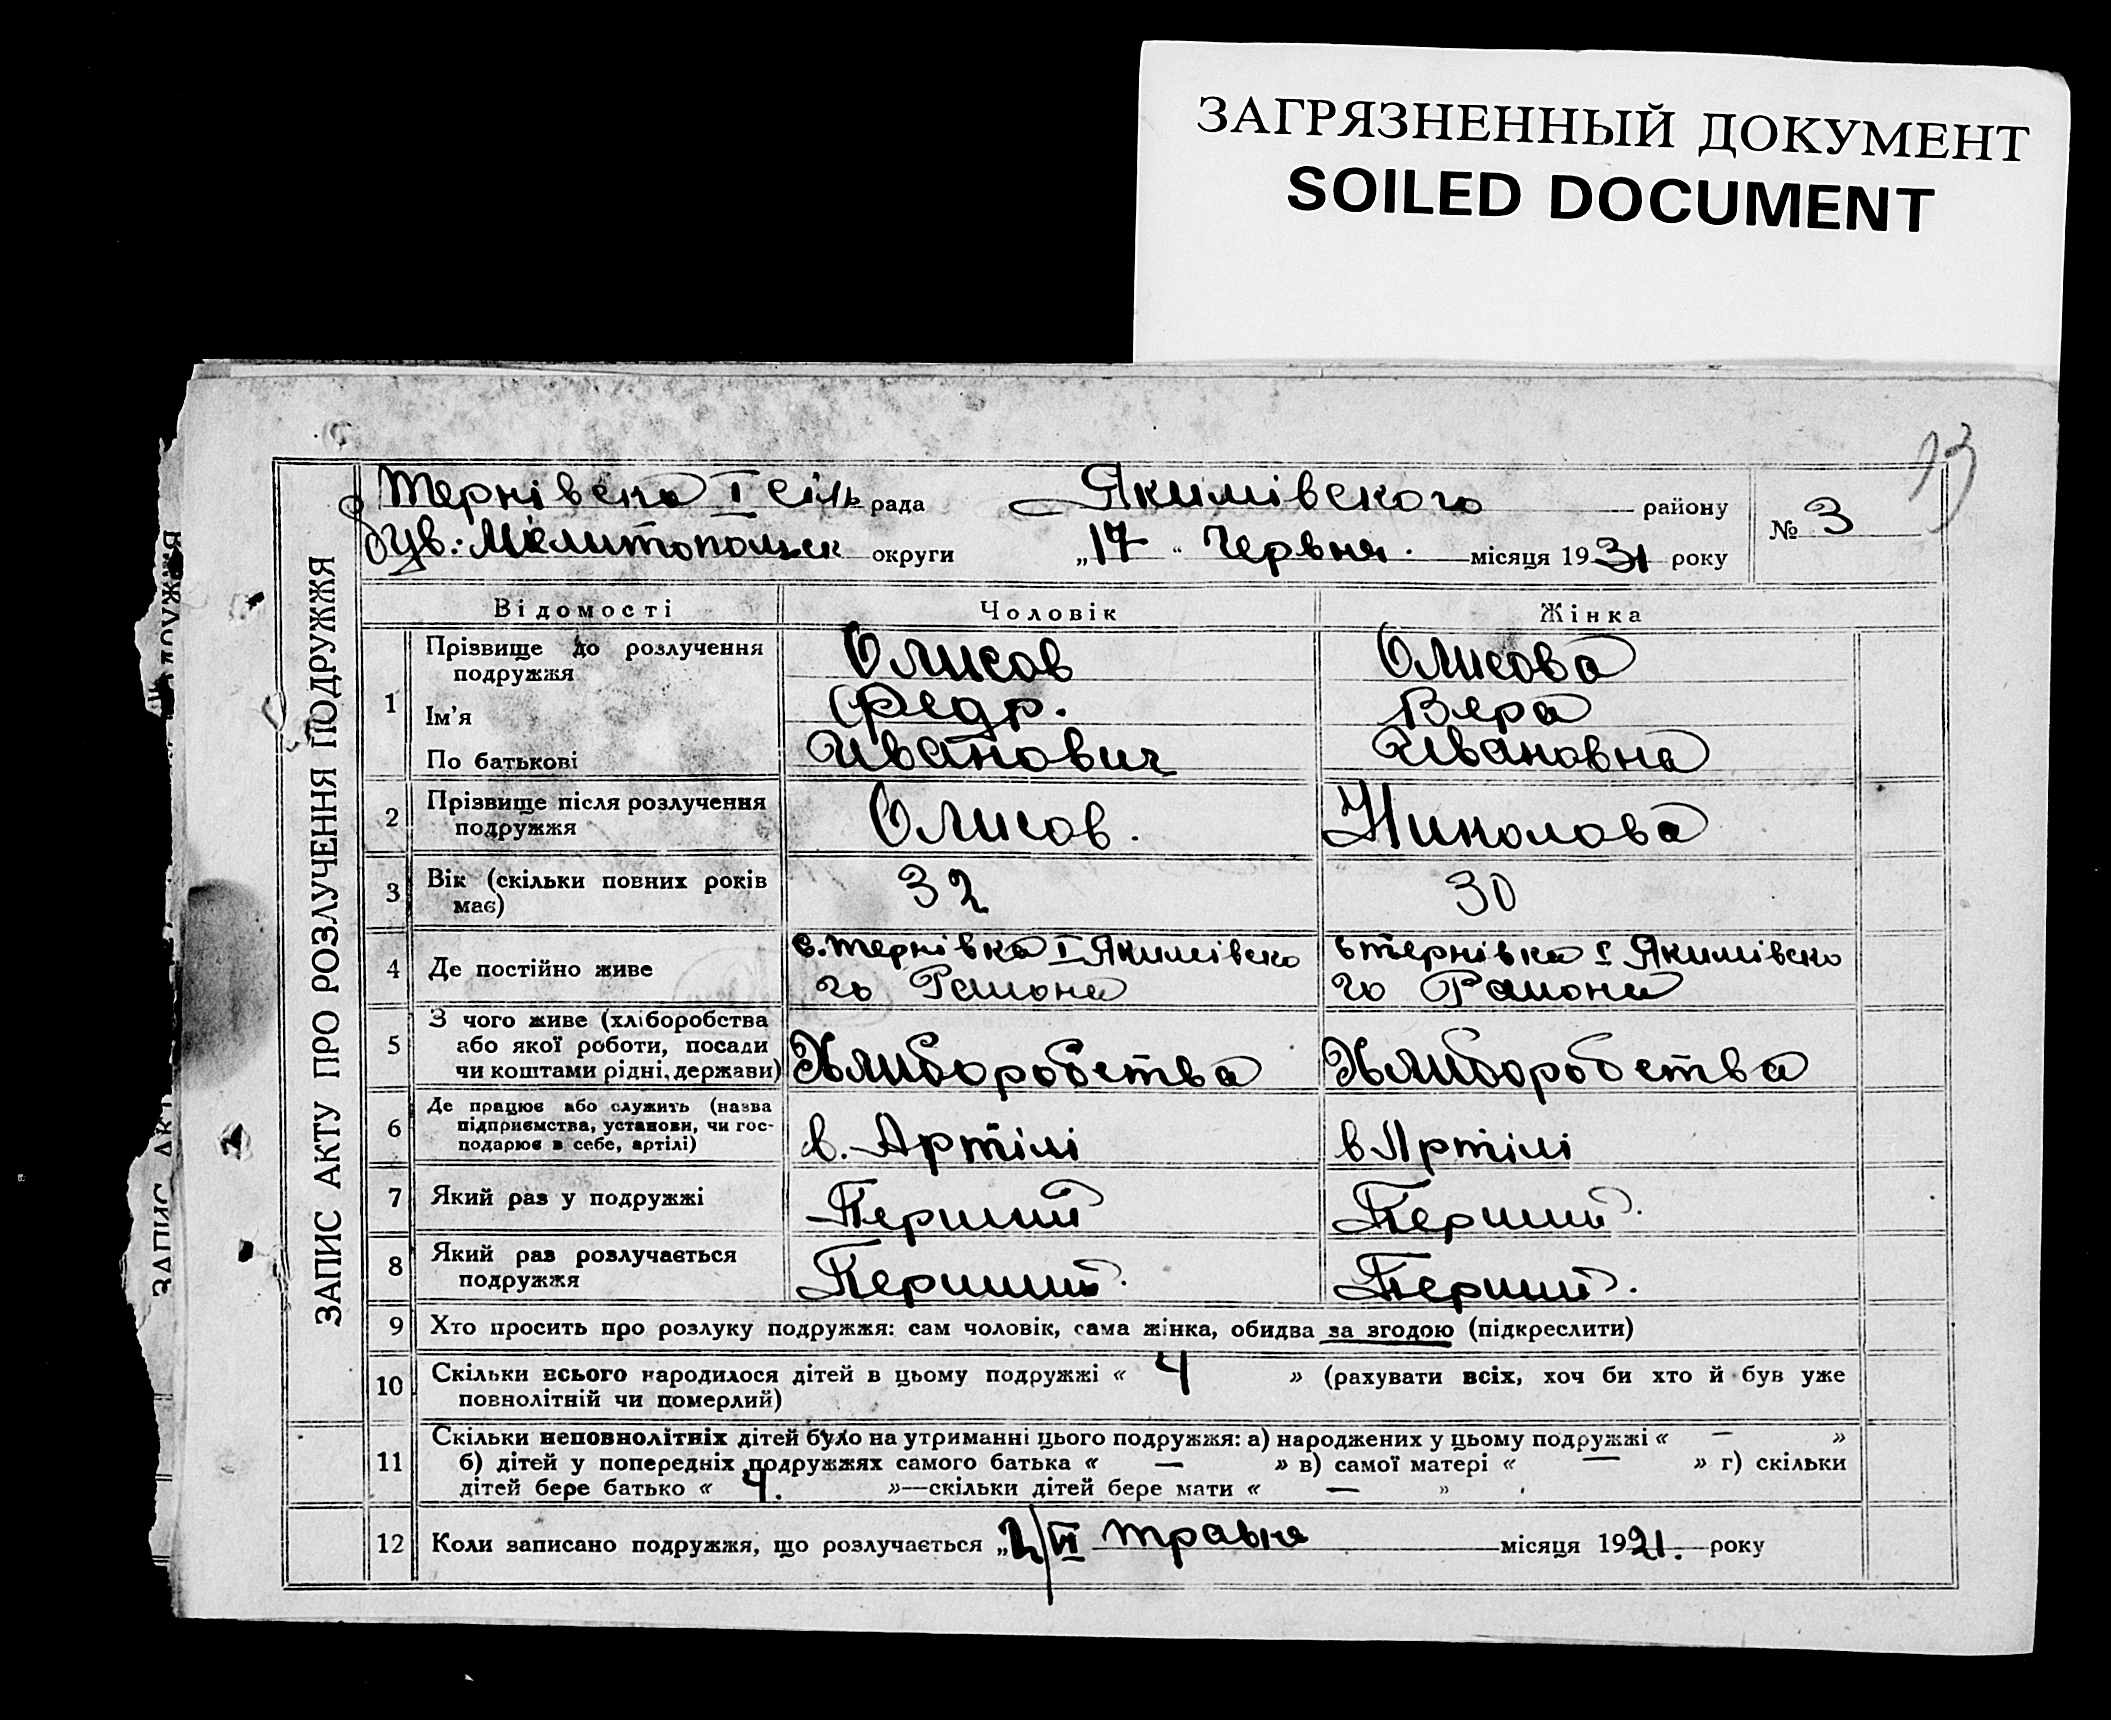 ЗАГРЯЗНЕННЫЙ ДОКУМЕНТ
SOILED DOCUMENT
13
ЗАПИС АКТУ ПРО РОЗЛУЧЕННЯ ПОДРУЖЖЯ
Тернівська I сіль рада Якимівского району № 3
був. Мелитопольск округи „17“ Червня. місяця 1931 року
Відомості Чоловік Жінка
1 Прізвище до розлучення подружжя Олисов Олисова
Ім'я Федр. Вера
По батькові Иванович Ивановна
2 Прізвище після розлучення подружжя Олисов. Николова
3 Вік (скільки повних років має) 32 30
4 Де постійно живе с. Тернівка I Якимівско с Тернівка I Якимівско
го Района го Района
5 З чого живе (хліборобства або якої роботи, посади чи коштами рідні, держави) Хлиборобства Хлиборобства
6 Де працює або служить (назва підприємства, установи, чи господарює в себе, артілі) в. Артілі в Артілі
7 Який раз у подружжі Перший Перший.
8 Який раз розлучається подружжя Перший. Перший.
9 Хто просить про розлуку подружжя: сам чоловік, сама жінка, обидва за згодою (підкреслити)
10 Скільки всього народилося дітей в цьому подружжі « 4 » (рахувати всіх, хоч би хто й був уже
повнолітній чи померлий)
11 Скільки неповнолітніх дітей було на утриманні цього подружжя: а) народжених у цьому подружжі « — »
б) дітей у попередніх подружжях самого батька « — » в) самої матері « — » г) скільки
дітей бере батько « 4. »—скільки дітей бере мати « — »
12 Коли записано подружжя, що розлучається „2/VI травня місяця 1921. року